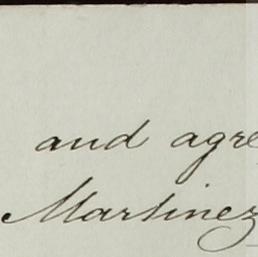 and agre
Martinez